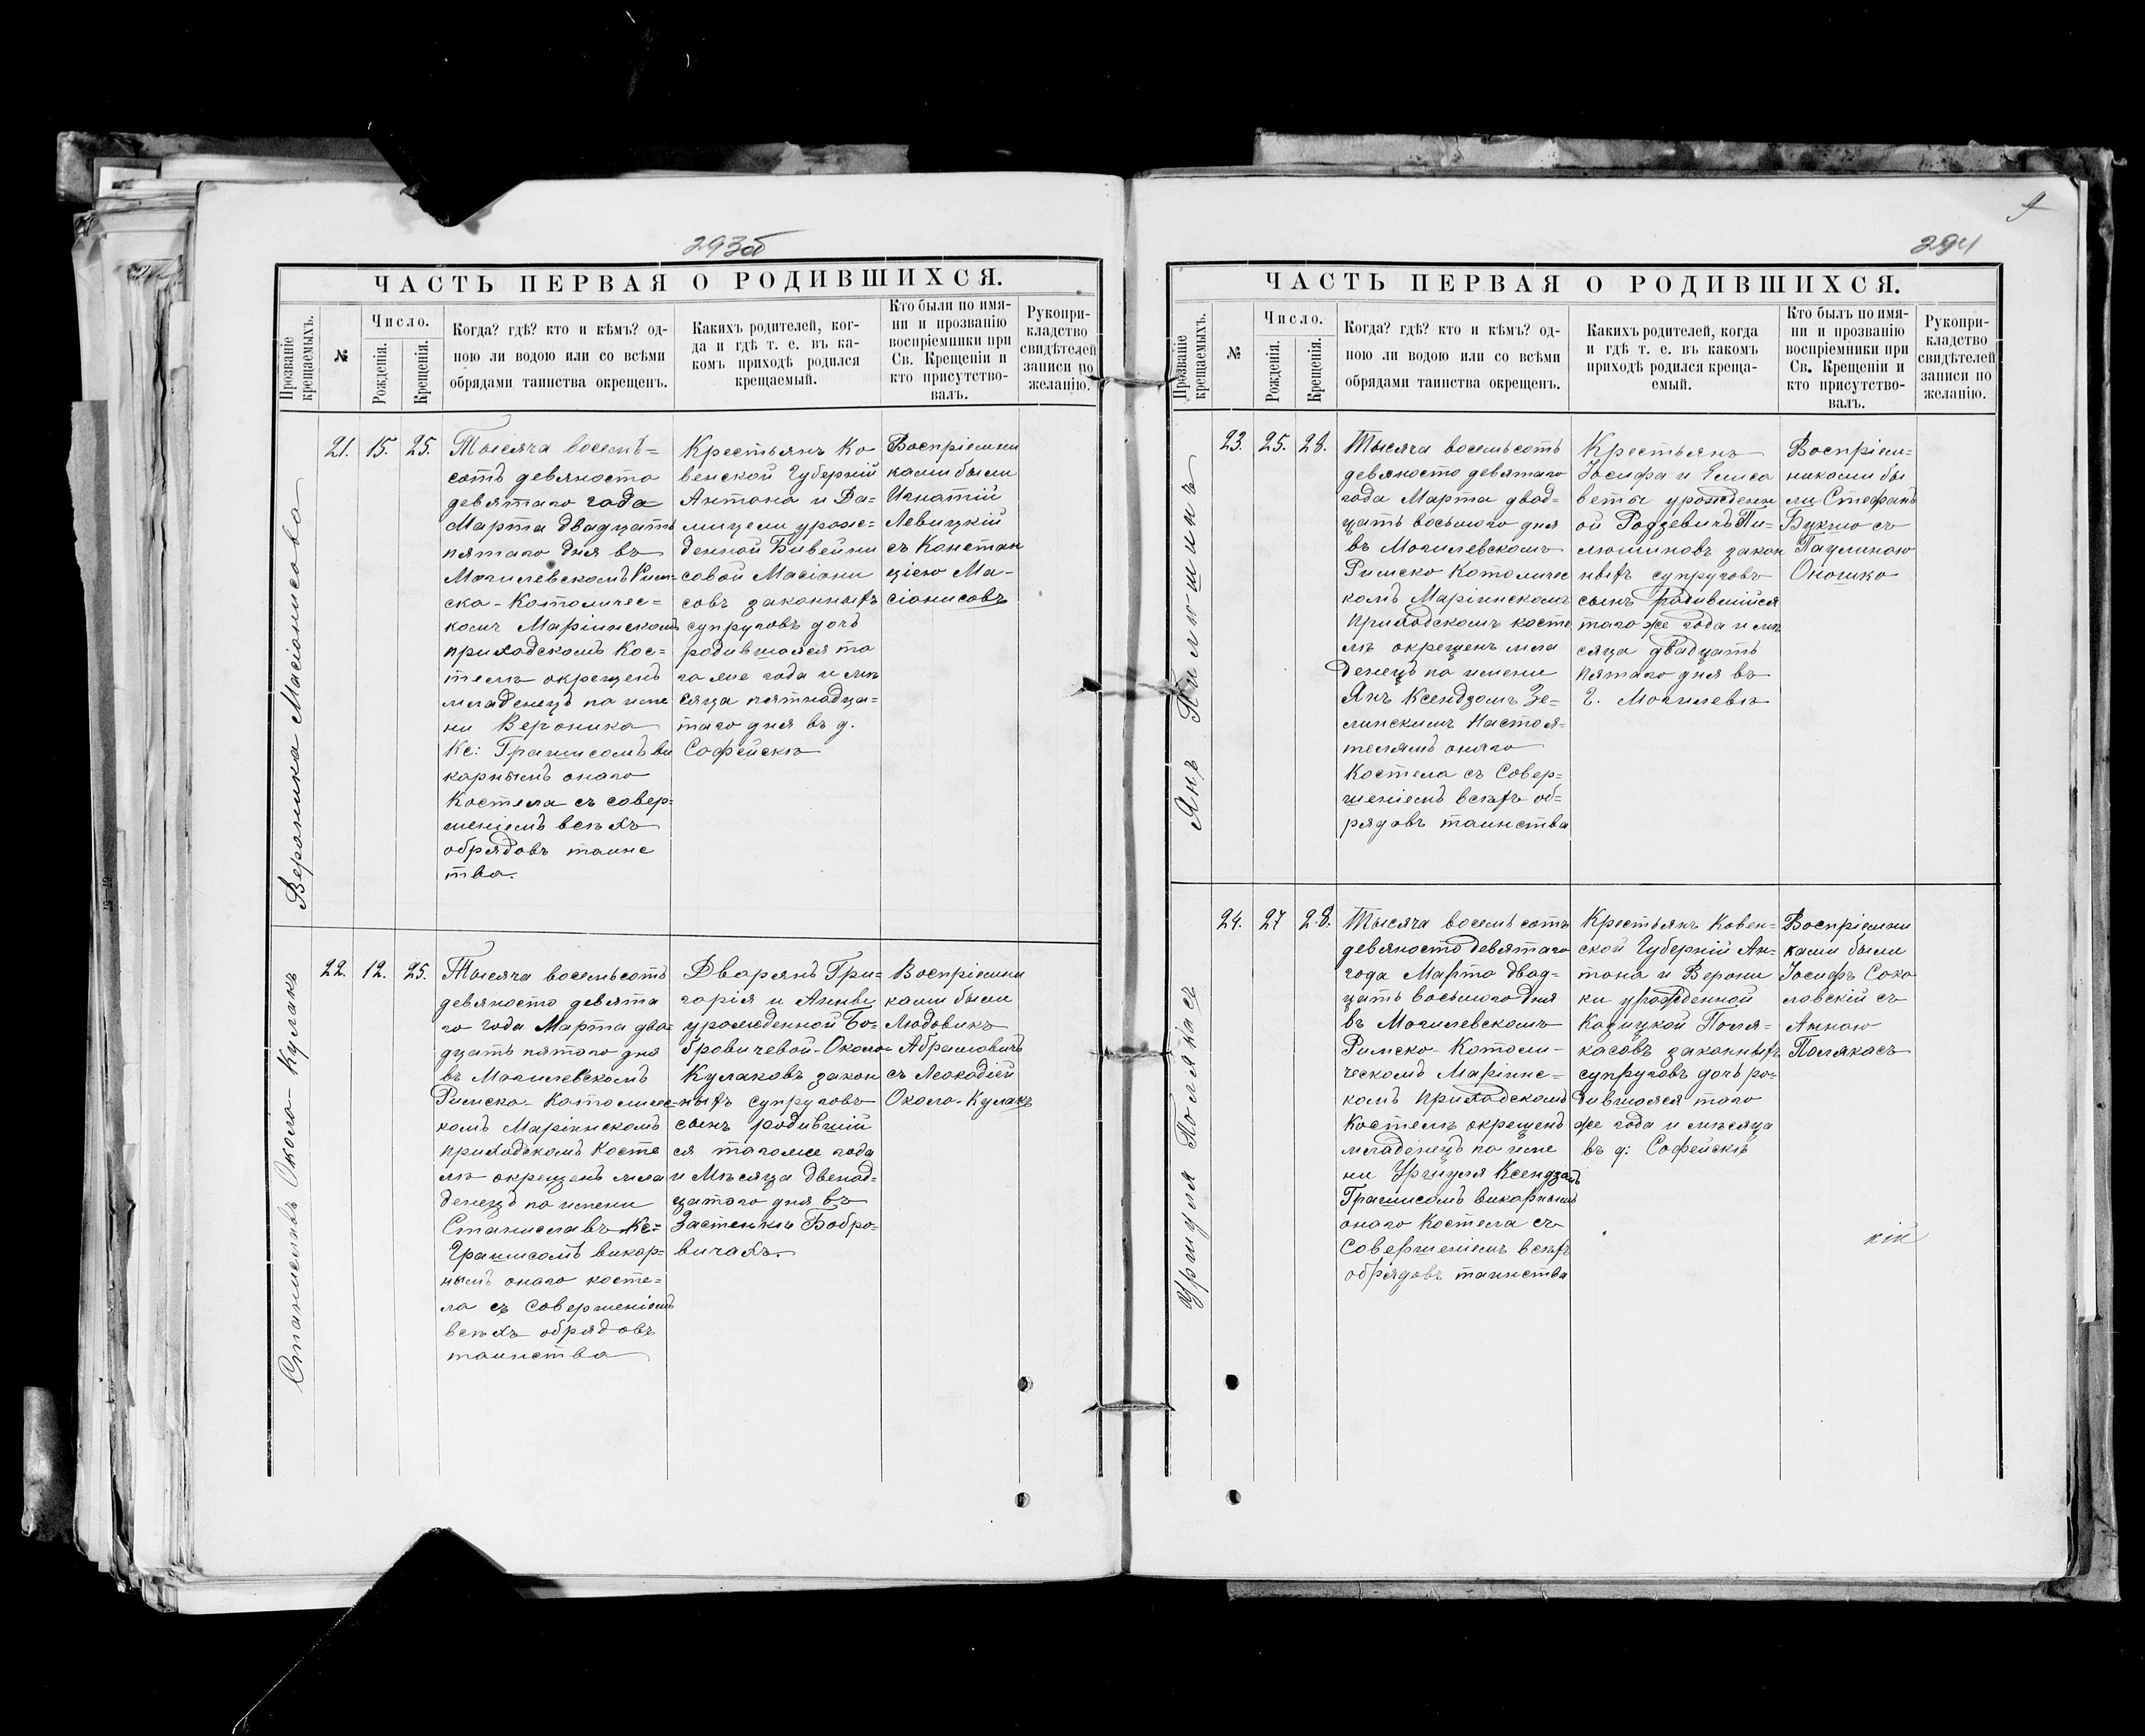 293об
ЧАСТЬ ПЕРВАЯ О РОДИВШИХСЯ.
Прозваніе крещаемыхъ.
№
Число.
Рожденія.
Крещенія.
Когда? гдѣ? кто и кѣмъ? од-
ною ли водою или со всѣми
обрядами таинства окрещенъ.
Какихъ родителей, ког-
да и гдѣ т. е. въ ка-
комъ приходѣ родился
крещаемый.
Кто были по имя-
ни и прозванію
воспріемники при
Св. Крещеніи и
кто присутство-
валъ.
Рукопри-
кладство
свидѣтелей
записи по
желанію.
Вероника Масіонисова
21. 15. 25.
Тысяча восемь=
сотъ девяносто
девятаго года
Марта двадцать
пятаго дня въ
Могилевскомъ Рим-
ско-Католичес=
комъ Маріинскомъ
приходскомъ Кос=
телѣ окрещенъ
младенецъ по име
ни Вероника
Кс: Грашисомъ ви
карнымъ онаго
Костела съ совер=
шеніемъ всѣхъ
обрядовъ таинс
тва.
Крестьянъ Ко
венской Губерніи
Антона и Да=
мицели урож=
денной Бивейни
совой Масіони
совъ законныхъ
супруговъ дочь
родившаяся то
го же года и мѣ
сяца пятнадца=
таго дня въ д.
Софейскѣ
Воспріемни
ками были
Игнатій
Левицкій
съ Констан
ціею Ма-
сіонисовъ
Станиславъ Около-Кулакъ
22. 12. 25.
Тысяча восемьсотъ
девяносто девята
го года Марта два=
дцать пятаго дня
въ Могилевскомъ
Римско-Католичес=
комъ Маріинскомъ
приходскомъ Косте
лѣ окрещенъ мла
денецъ по имени
Станиславъ Кс=
Грашисомъ викар=
нымъ онаго косте=
ла съ Совершеніемъ
всѣхъ обрядовъ
таинства
Дворянъ Гри=
горія и Анны
урожденной Бо=
бровичевой-Около-
Кулаковъ закон
ныхъ супруговъ
сынъ родившій
ся тогоже года
и Мѣсяца двенад=
цатаго дня въ
Застенки Бобро=
вичахъ.
Воспріемни
ками были
Людовикъ
Абрамовичъ
съ Леокадіей
Около-Кулакъ
294
ЧАСТЬ ПЕРВАЯ О РОДИВШИХСЯ.
Прозваніе крещаемыхъ.
№
Число.
Рожденія.
Крещенія.
Когда? гдѣ? кто и кѣмъ? од-
ною ли водою или со всѣми
обрядами таинства окрещенъ.
Какихъ родителей, когда
и гдѣ т. е. въ какомъ
приходѣ родился креща-
емый.
Кто былъ по имя-
ни и прозванію
воспріемники при
Св. Крещеніи и
кто присутство-
валъ.
Рукопри-
кладство
свидѣтелей
записи по
желанію.
Янъ Пилюшинъ
23. 25. 28.
Тысяча восемьсотъ
девяносто девятаго
года Марта двад=
цать восьмого дня
въ Могилевскомъ
Римско Католичес
комъ Маріинскомъ
приходскомъ косте
лѣ окрещенъ мла
денецъ по имени
Янъ Ксендзомъ Зе=
линскимъ Настоя=
телямъ онаго
Костела съ Совер=
шеніемъ всѣхъ об=
рядовъ таинства
Крестьянъ
Іосифа и Елиса
веты урожденн
ой Родзевичъ Пи=
люшиновъ закон
ныхъ супруговъ
сынъ Родившійся
того же года и мѣ
сяца двадцать
пятаго дня въ
Г. Могилевѣ
Воспріем=
никами бы
ли Стефанъ
Букшо съ
Паулиною
Оношко
Уршуля Полякасъ
24. 27 28.
Тысяча восемьсотъ
девяносто девятаго
года Марта двад=
цать восьмого дня
въ Могилевскомъ
Римско-Католи-
ческомъ Маріинс=
комъ Приходскомъ
Костелѣ окрещенъ
младенецъ по име
ни Уршуля Ксендзомъ
Грашисомъ викарнымъ
онаго Костела съ
Совершеніемъ всѣхъ
обрядовъ таинства
Крестьянъ Ковен=
ской Губерніи Ан=
тона и Верони
ки урожденной
Казицкой Поля=
касовъ законныхъ
супруговъ дочь ро=
дившаяся того
же года и мѣсяца
въ д: Софейскѣ
Воспріемни
ками были
Іосифъ Соко
ловскій съ
Анною
Полякасъ
кій